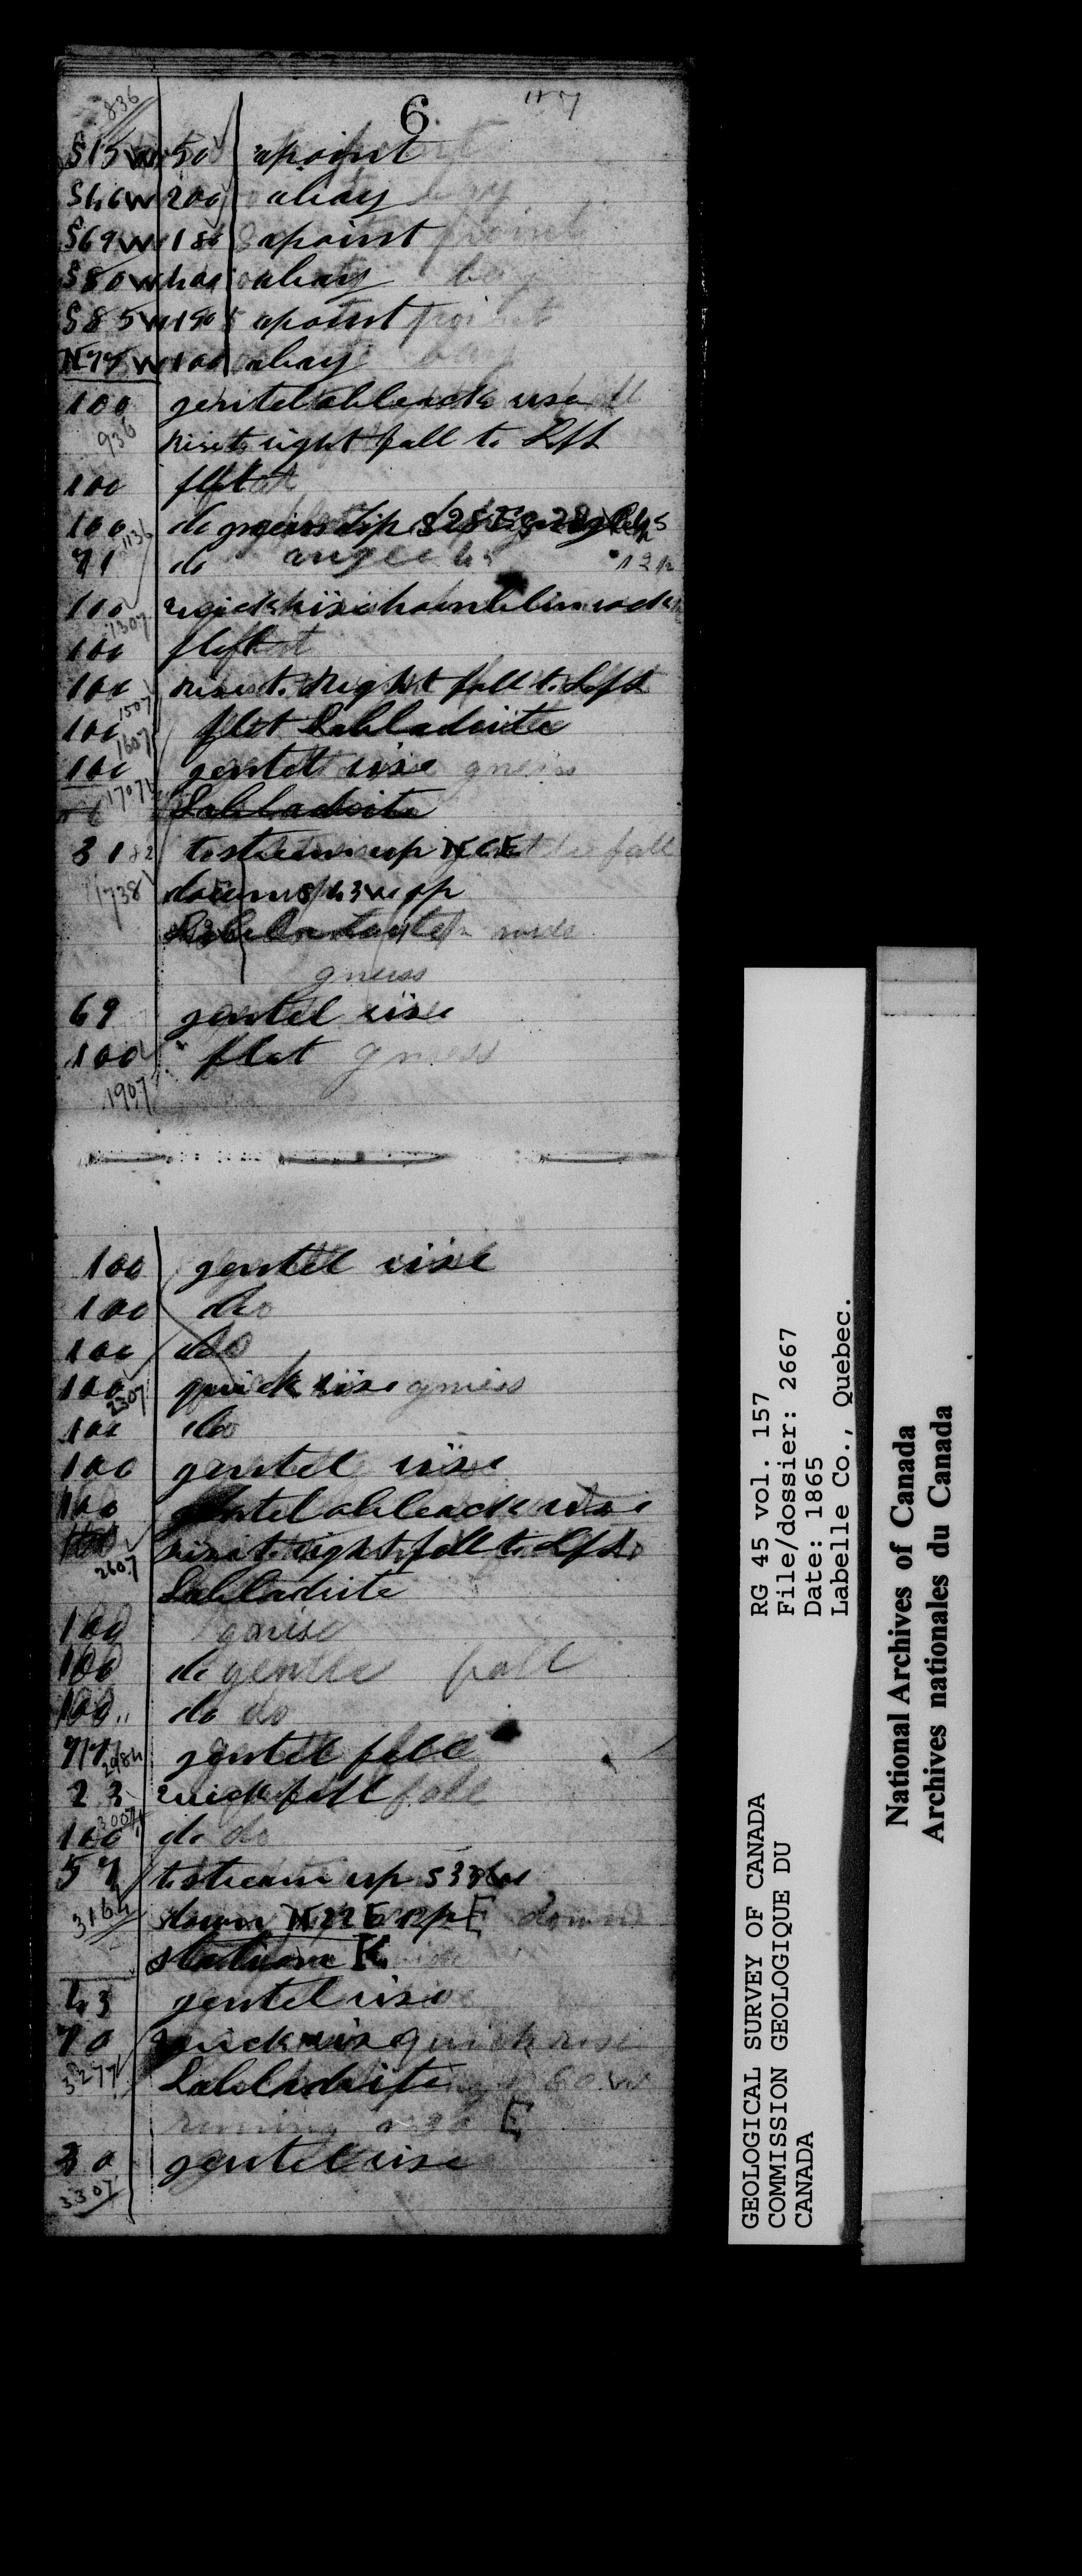 836
6
S15W 50 apoint
S46W 200 abay
S69W 186 apoint
S80W 400 abay
S85W 150 apoint
N75W 100 abay
100 gentel obleack rise
936 rise to right fall to Left
100 flat
100 do gneiss dip S28E
1136
71 do angle 45
100 quick rise
1307
100 flat
100 rise to Right fall to Left
1507
100 flat Labladoite
1607
100 gentel rise gneiss
1707
Labladoite
31 to stream up
1738 down S43W
gneiss
69 gentel rise
100 flat gneiss
1907
100 gentel rise
100 do
100 do
100 quick rise gneiss
2307
100 do
100 gentel rise
100 gentel obleack rise
rise to right fall to Left
2607
Labladoite
100 gneiss
100 do gentle fall
100 do do
77 gentel fall
2984
23 quick fall fall
3007
100 do do
57 to stream up S33W
3164 down N22E E down
station K
43 gentel rise
70 quick rise quick rise
3277 Labladoite
running E
30 gentel rise
3307
RG 45 vol. 157
File/dossier: 2667
Date: 1865
Labelle Co., Quebec.
GEOLOGICAL SURVEY OF CANADA
COMMISSION GEOLOGIQUE DU
CANADA
National Archives of Canada
Archives nationales du Canada